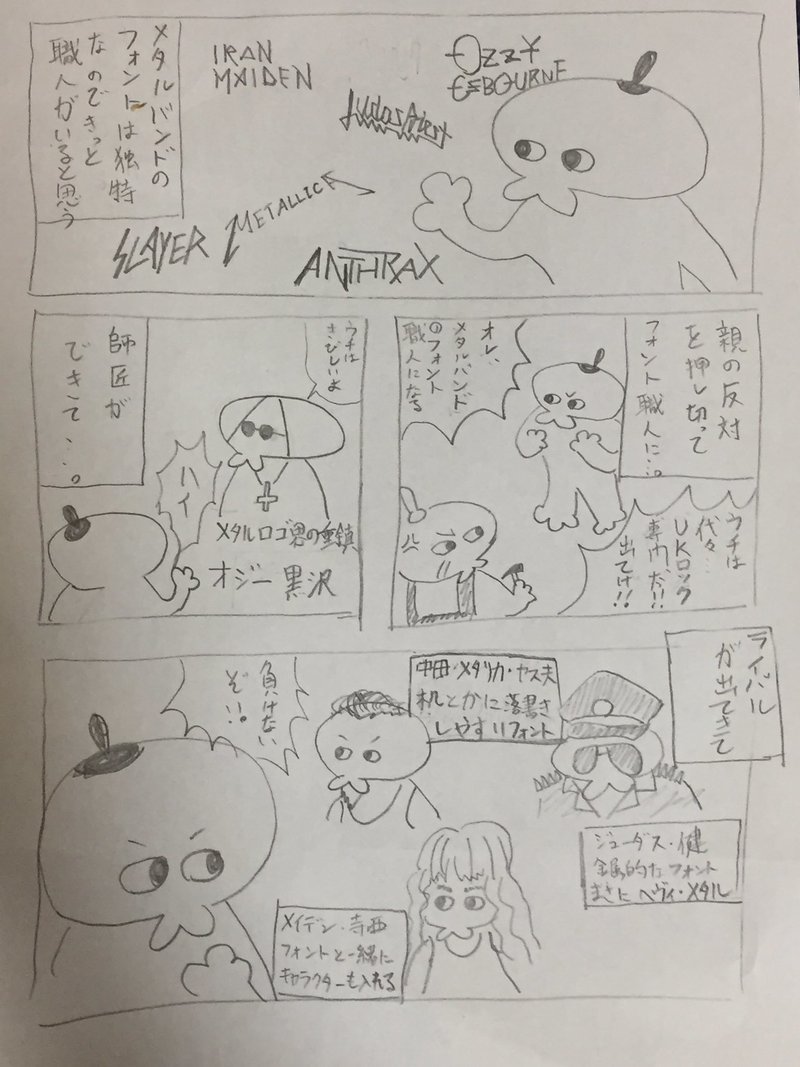 メタルバンドの
フォントは独特
なのできっと
職人がいると思う
IRAN
MAIDEN
OZZY
OSBOURNE
Judas Priest
METALLICA
SLAYER
ANTHRAX
親の反対
を押し切って
フォント職人に…。
オレ、
メタルバンド
のフォント
職人になる
ウチは
代々…
UKロック
専門だ!!
出てけ!!
師匠が
できて…。
ウチは
きびしいよ
ハイ
メタルロゴ界の重鎮
オジー黒沢
ライバル
が出てきて
中田・メタリカ・ヤス夫
机とかに落書き
しやすいフォント
負けない
ぞい。
ジューダス・健
金属的なフォント
まさにヘヴィ・メタル
メイデン・寺西
フォントと一緒に
キャラクターも入れる